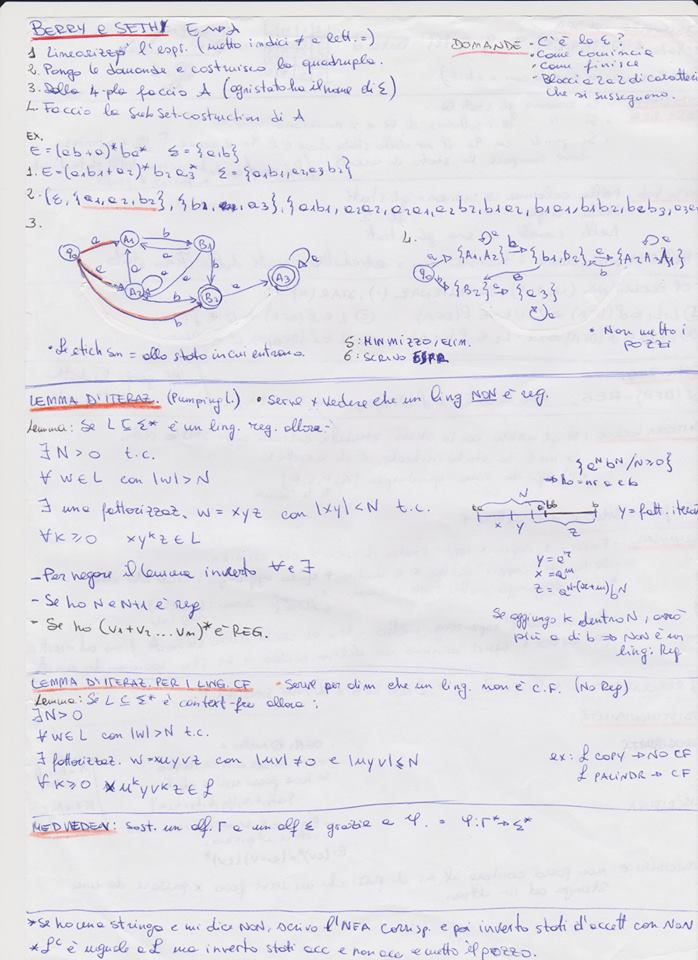 BERRY e SETHY E→A
1 Linearizzo l'espr. (metto indici ≠ a lett. =)
2. Pongo le domande e costruisco la quadrupla.
3. Dalla 4-pla faccio A (ogni stato ha il nome di Σ)
4. Faccio la subset-costruction di A
DOMANDE - C'è la ε?
- Come comincia
- Come finisce
- Blocci a 2 a 2 di caratteri
che si susseguono.
EX.
E = (ab+a)*ba* Σ = {a,b}
1. E = (a1b1+a2)*b2a3* Σ = {a1b1, a2, a3 b2}
2. (ε, {a1, a2, b2}, {b2, a3}, {a1b1, a2a2, a2a1, a2b2, b1a2, b1a1, b1b2, b2a3, a3a3
3.
q0 a A1 b B1
a a a b
A2 b B2 a A3 a
b
4.
q0 a {A1,A2} b {B1,B2} a {A2A3A1}
b {B2} a {a3}
a
• Le etich sn = allo stato in cui entrano.
5: MINIMIZZO, ELIM.
6: SCRIVO ESPR
• Non metto i
pozzi
LEMMA D'ITERAZ. (Pumping L.) • serve x vedere che un ling NON è reg.
Lemma: Se L ⊆ Σ* è un ling. reg. allora:
∃ N > 0 t.c.
∀ w ∈ L con |w| > N
∃ una fattorizzaz. w = xyz con |xy| < N t.c.
∀ K ≥ 0 xy^k z ∈ L
{a^N b^N / N ≥ 0}
→ ho = nr a e b
N
x y z
y = fatt. iterat
y = a^r
x = a^m
z = a^N-(r+m) b^N
- Per negare il lemma inverto ∀ e ∃
- Se ho N e N+1 è reg
- Se ho (v1+v2 ... vm)* è REG.
Se aggiungo k dentro N, avrò
più a di b ⇒ Non è un
ling. Reg
LEMMA D'ITERAZ. PER I LING. CF - Serve per dim che un ling. non è C.F. (No Reg)
Lemma: Se L ⊆ Σ* è context-free allora:
∃ N > 0
∀ w ∈ L con |w| > N t.c.
∃ fattorizzaz. w = xuyvz con |uv| ≠ 0 e |uyv| ≤ N
∀ K ≥ 0 xu^k yv^k z ∈ L
ex: L COPY → NO CF
L PALINDR → CF
MEDVEDEV: Sost. un alf. Γ a un alf Σ grazie a φ. = φ: Γ* → Σ*
* Se ho una stringa e mi dice NON, scrivo l'NFA corrisp. e poi inverto stati d'accett con NON
* L^c è uguale a L ma inverto stati acc e non acc e metto il pozzo.